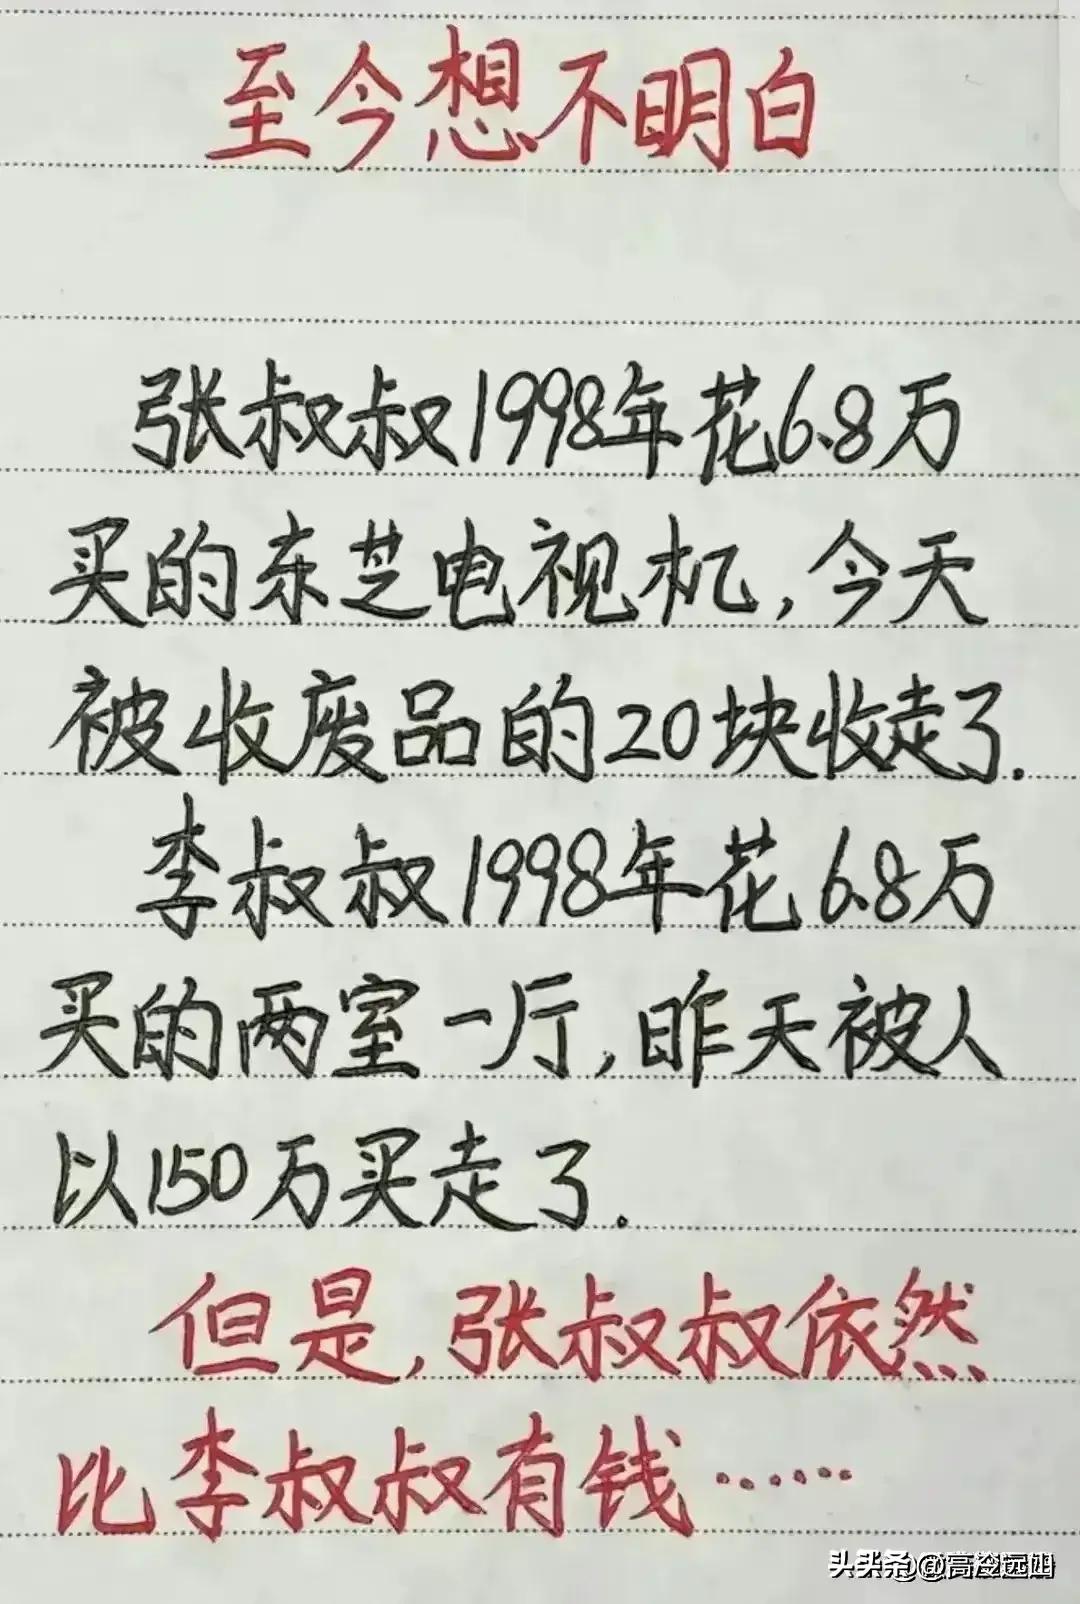 至今想不明白
张叔叔1998年花6.8万
买的东芝电视机,今天
被收废品的20块收走了.
李叔叔1998年花6.8万
买的两室一厅,昨天被人
以150万买走了.
但是,张叔叔依然
比李叔叔有钱······
头条@高冷远山